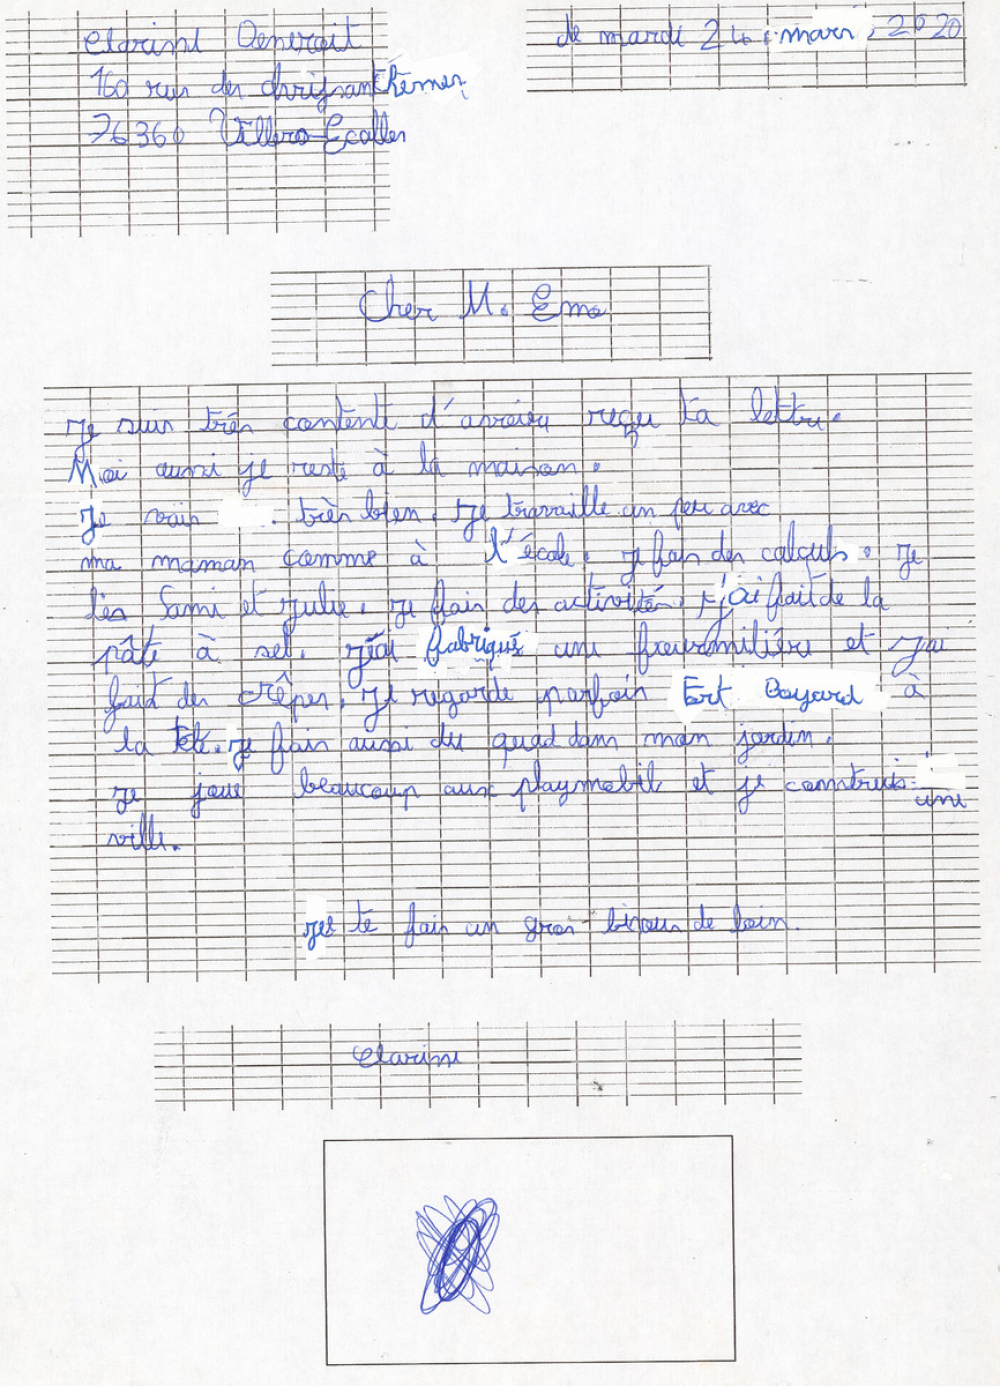 Clarisse
le mardi 24 mars, 2020
160 rue des chrisanthèmes
76360 Villers-Ecalles
Cher M. Emo
Je suis très contente d'avoir reçu ta lettre.
Moi aussi je reste à la maison.
Je vais très bien. Je travaille un peu avec
ma maman comme à l'école. Je fais des calculs. Je
lis Sami et Julie. Je fais des activités, j'ai fait de la
pâte à sel. J'ai fabriqué une fourmilière et j'ai
fait des crêpes. Je regarde parfois Fort Boyard à
la télé. Je fais aussi du quad dans mon jardin.
Je joue beaucoup aux playmobil et je construis une
ville.
Je te fais un gros bisous de loin.
Clarisse